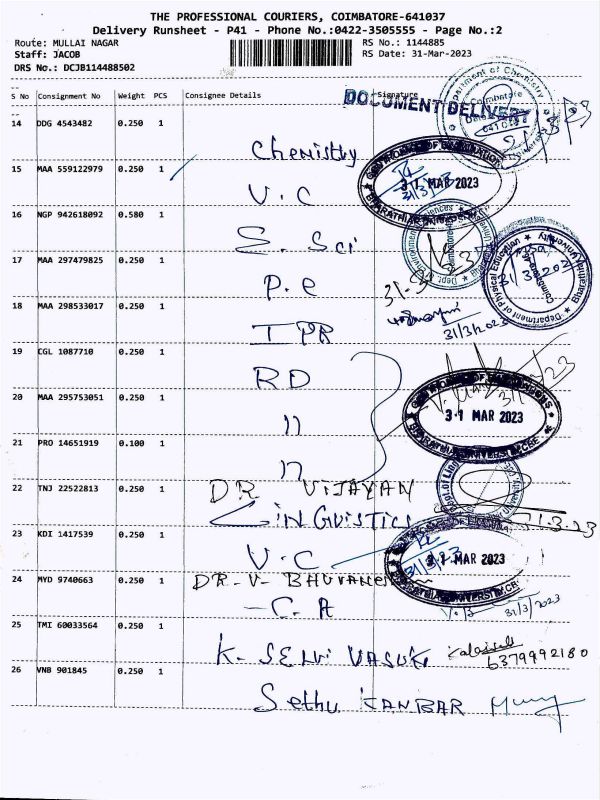 THE PROFESSIONAL COURIERS, COIMBATORE-641037
Delivery Runsheet - P41 - Phone No.:0422-3505555 - Page No.:2
Route: MULLAI NAGAR RS No.: 1144885
Staff: JACOB RS Date: 31-Mar-2023
DRS No.: DCJB114488502
S No Consignment No Weight PCS Consignee Details Signature
DOCUMENT DELIVERY
14 DDG 4543482 0.250 1
Chemistry
15 MAA 559122979 0.250 1
31 MAR 2023
V.C
16 NGP 942618092 0.580 1
E. Sci
17 MAA 297479825 0.250 1
P.e
Department of Physical Education
Bharathiar University
18 MAA 298533017 0.250 1
IPR 31/3/2023
19 CGL 1087710 0.250 1
RD
20 MAA 295753051 0.250 1
31 MAR 2023
BHARATHIAR UNIVERSITY, CBE
11
21 PRO 14651919 0.100 1
11
22 TNJ 22522813 0.250 1
DR VIJAYAN
LINGUISTICS 31.3.23
23 KDI 1417539 0.250 1
V.C
31 MAR 2023
24 MYD 9740663 0.250 1
DR. V. BHUVANES
C.A 31/3/2023
25 TMI 60033564 0.250 1
K. SELVI VASUKI
6379992180
26 VNB 901845 0.250 1
Sethu KANBAR